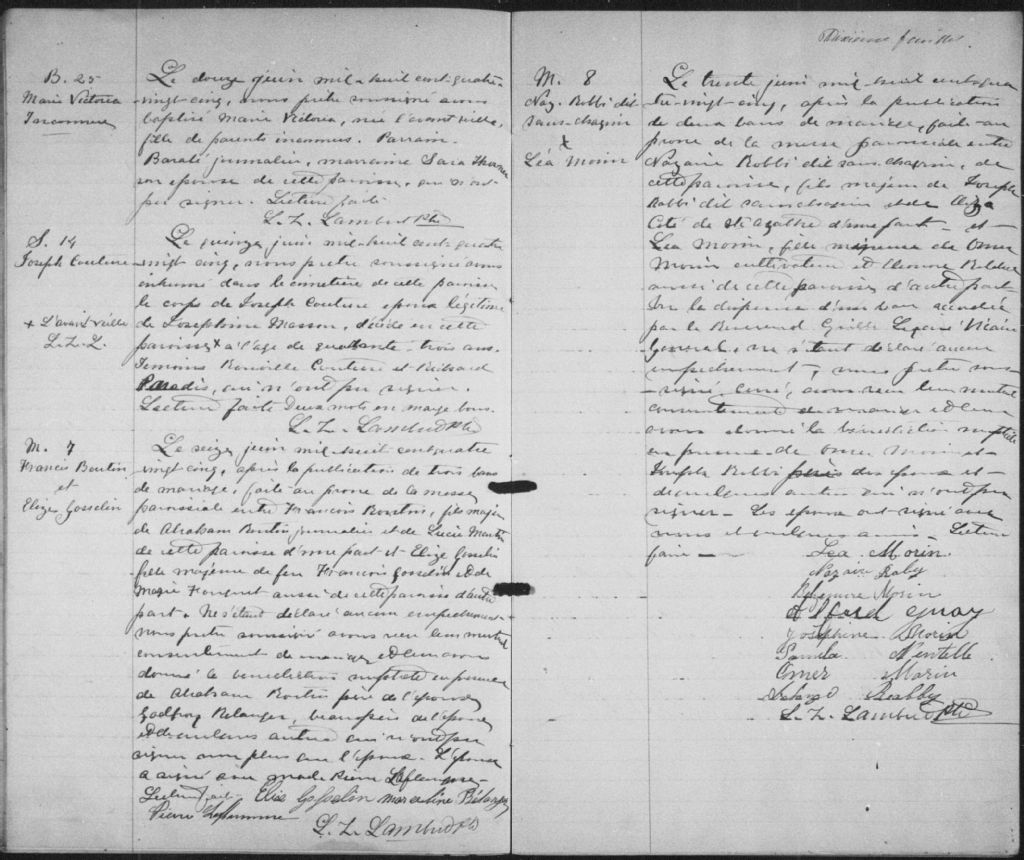 B. 25
Marie Victoria
Inconnue
Le douze juin mil-huit cent quatre
-vingt-cinq, nous prêtre soussigné avons
baptisé Marie Victoria, née l'avant veille,
fille de parents inconnus. Parrain
journalier, marraine Sara
son épouse de cette paroisse, qui n'ont
pu signer. Lecture faite
L. Z. Lambert Ptre
S. 14
Joseph Couture
+ L'avant veille
L. Z. L.
Le quinze juin mil-huit cent quatre
-vingt cinq, nous prêtre soussigné avons
inhumé dans le cimetière de cette paroisse
le corps de Joseph Couture époux légitime
de Josephine Masson, décédé en cette
paroisse + à l'âge de quarante-trois ans.
Témoins Couture et Richard
Paradis, qui n'ont pu signer.
Lecture faite Deux mots en marge bons.
L. Z. Lambert Ptre
M. 7
Francis Boutin
et
Elize Gosselin
Le seize juin mil-huit cent quatre
vingt cinq, après la publication de trois bans
de mariage, faite au prone de la messe
paroissiale entre François Boutin, fils majeur
de Abraham Boutin journalier et de Lucie
de cette paroisse d'une part et Elize Gosselin
fille majeure de feu François Gosselin et de
Marie Fouquet aussi de cette paroisse d'autre
part. Ne s'étant déclaré aucun empêchement
nous prêtre soussigné avons reçu leur mutuel
consentement de mariage et leur avons
donné la bénédiction nuptiale en présence
de Abraham Boutin père de l'époux
Godfroy Belanger, beau-père de l'épouse
et de quelques autres qui n'ont pu
signer non plus que l'époux. L'épouse
a signé avec nous de Pierre Laflamme -
Lecture faite. Elize Gosselin Marceline Bélanger
Pierre Laflamme
L. Z. Lambert Ptre
Dixième feuille.
M. 8
Naz. Robbi dit
sans-chagrin
+
Léa Morin
Le trente juin mil-huit cent qua
tre-vingt-cinq, après la publication
de deux bans de mariage, faite au
prone de la messe paroissiale entre
Nazaire Robbi dit sans chagrin, de
cette paroisse, fils majeur de Joseph
Robbi dit sans chagrin et de Eliza
Coté de Ste Agathe d'une part - et -
Léa Morin, fille mineure de Omer
Morin cultivateur et Eleonore
aussi de cette paroisse d'autre part -
Vu la dispense d'un ban accordée
par le Révérend Cyrille Legaré Vicaire
Général, ne s'étant déclaré aucun
empêchement, nous prêtre sous
-signé, curé, avons reçu leur mutuel
consentement de mariage et leur
avons donné la bénédiction nuptiale
en présence de Omer Morin et
Joseph Robbi pères des époux et
de quelques autres qui n'ont pu
signer - Les époux ont signé avec
nous et quelques amis - Lecture
faite -
Lea Morin
Nazaire Raby
Morin
Alfred Guay
Josephine Morin
Pamela
Omer Morin
Raby
L. Z. Lambert Ptre